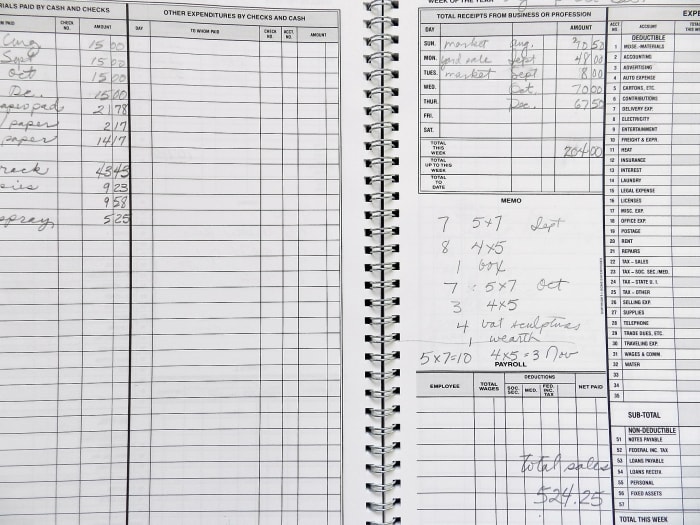 RIALS PAID BY CASH AND CHECKS
OTHER EXPENDITURES BY CHECKS AND CASH
M PAID
CHECK NO.
AMOUNT
DAY
TO WHOM PAID
CHECK NO.
ACCT. NO.
AMOUNT
Aug 15 00
Sept 15 00
Oct 15 00
De. 15 00
paper pad 21 78
paper 2 17
paper 14 17
rack 43 43
9 23
9 58
spray 5 25
WEEK OF THE YEAR
TOTAL RECEIPTS FROM BUSINESS OR PROFESSION
DAY
AMOUNT
SUN. market aug.
MON. yard sale Sept 48 00
TUES. market Sept 8 00
WED. Oct. 70 00
THUR. Dec. 67 50
FRI.
SAT.
TOTAL THIS WEEK 204 00
TOTAL UP TO THIS WEEK
TOTAL TO DATE
MEMO
7 5x7 Sept
8 4x5
1 box
7 5x7 Oct
3 4x5
4 bat sculptures
1 wearth
5x7=10 4x5=3 Nov
PAYROLL
EMPLOYEE
TOTAL WAGES
DEDUCTIONS
SOC. SEC.
MED.
FED. INC. TAX
NET PAID
total sales
524.25
EXPE
ACCT. NO.
ACCOUNT
TOTAL THIS W
DEDUCTIBLE
1 MDSE.-MATERIALS
2 ACCOUNTING
3 ADVERTISING
4 AUTO EXPENSE
5 CARTONS, ETC.
6 CONTRIBUTIONS
7 DELIVERY EXP.
8 ELECTRICITY
9 ENTERTAINMENT
10 FREIGHT & EXPR.
11 HEAT
12 INSURANCE
13 INTEREST
14 LAUNDRY
15 LEGAL EXPENSE
16 LICENSES
17 MISC. EXP.
18 OFFICE EXP.
19 POSTAGE
20 RENT
21 REPAIRS
22 TAX - SALES
23 TAX - SOC. SEC./MED.
24 TAX - STATE U. I.
25 TAX - OTHER
26 SELLING EXP.
27 SUPPLIES
28 TELEPHONE
29 TRADE DUES, ETC.
30 TRAVELING EXP.
31 WAGES & COMM.
32 WATER
33
34
35
SUB-TOTAL
NON-DEDUCTIBLE
51 NOTES PAYABLE
52 FEDERAL INC. TAX
53 LOANS PAYABLE
54 LOANS RECEIV.
55 PERSONAL
56 FIXED ASSETS
57
TOTAL THIS WEEK